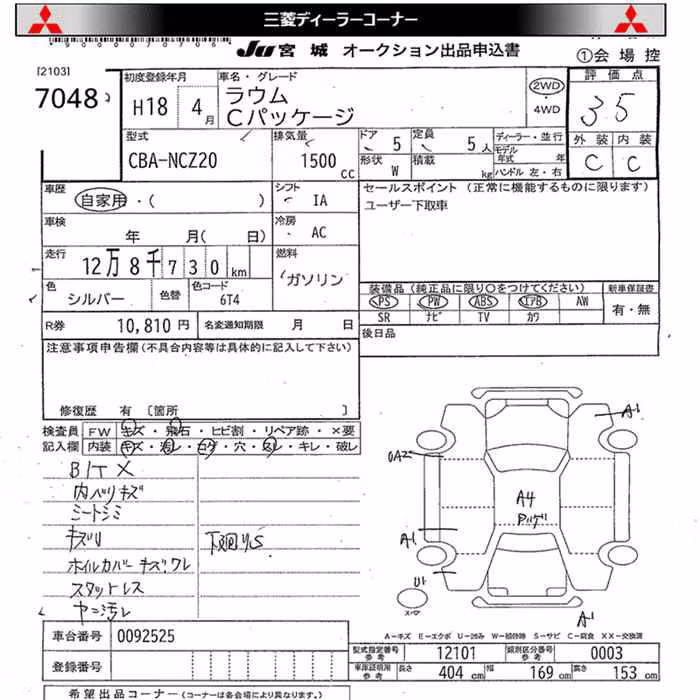 三菱ディーラーコーナー
JU宮城 オークション出品申込書
①会場控
[2103]
7048
初度登録年月
H18 4月
車名・グレード
ラウム
Cパッケージ
2WD
4WD
評価点
3.5
外装 内装
C C
型式
CBA-NCZ20
排気量
1500cc
ドア 5
定員 5人
形状 W
積載 kg
ディーラー・並行
モデル年式 年
ハンドル 左・右
車歴
自家用・( )
シフト
IA
セールスポイント (正常に機能するものに限ります)
ユーザー下取車
車検
年 月( 日)
冷房
AC
走行
12万8千730km
燃料
ガソリン
色
シルバー
色替
色コード
6T4
装備品(純正品に限り○をつけてください)
PS PW ABS エアB AW
SR ナビ TV カワ
新車保証書
有・無
R券 10,810円
名変通知期限 月 日
後日品
注意事項申告欄(不具合内容等は具体的に記入して下さい)
修復歴 有 〔箇所 〕
検査員記入欄
FW キズ・飛石・ヒビ割・リペア跡・×要
内装 キズ・汚レ・コゲ・穴・スレ・キレ・破レ
内ハリキズ
シートシミ
キズU
下廻りS
ホイルカバーキズワレ
スタットレス
ヤニ汚レ
A1
A4
A1
U1
A1
A-キズ E-エクボ U-凹み W-補修跡 S-サビ C-腐食 XX-交換済
車台番号 0092525
登録番号
型式指定番号 参考 12101
類別区分番号 参考 0003
車庫証明用 参考
長さ 404cm
幅 169cm
高さ 153cm
希望出品コーナー(コーナーは各会場により異なります。)